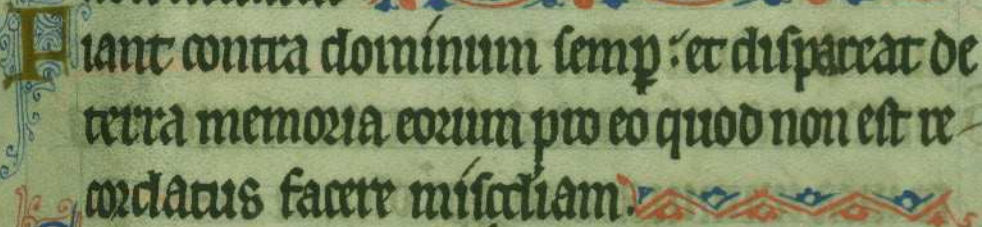 Fiant contra dominum semꝑ: et dispareat de
terra memoria eorum pro eo quod non est re-
cordatus facere miscdiam.